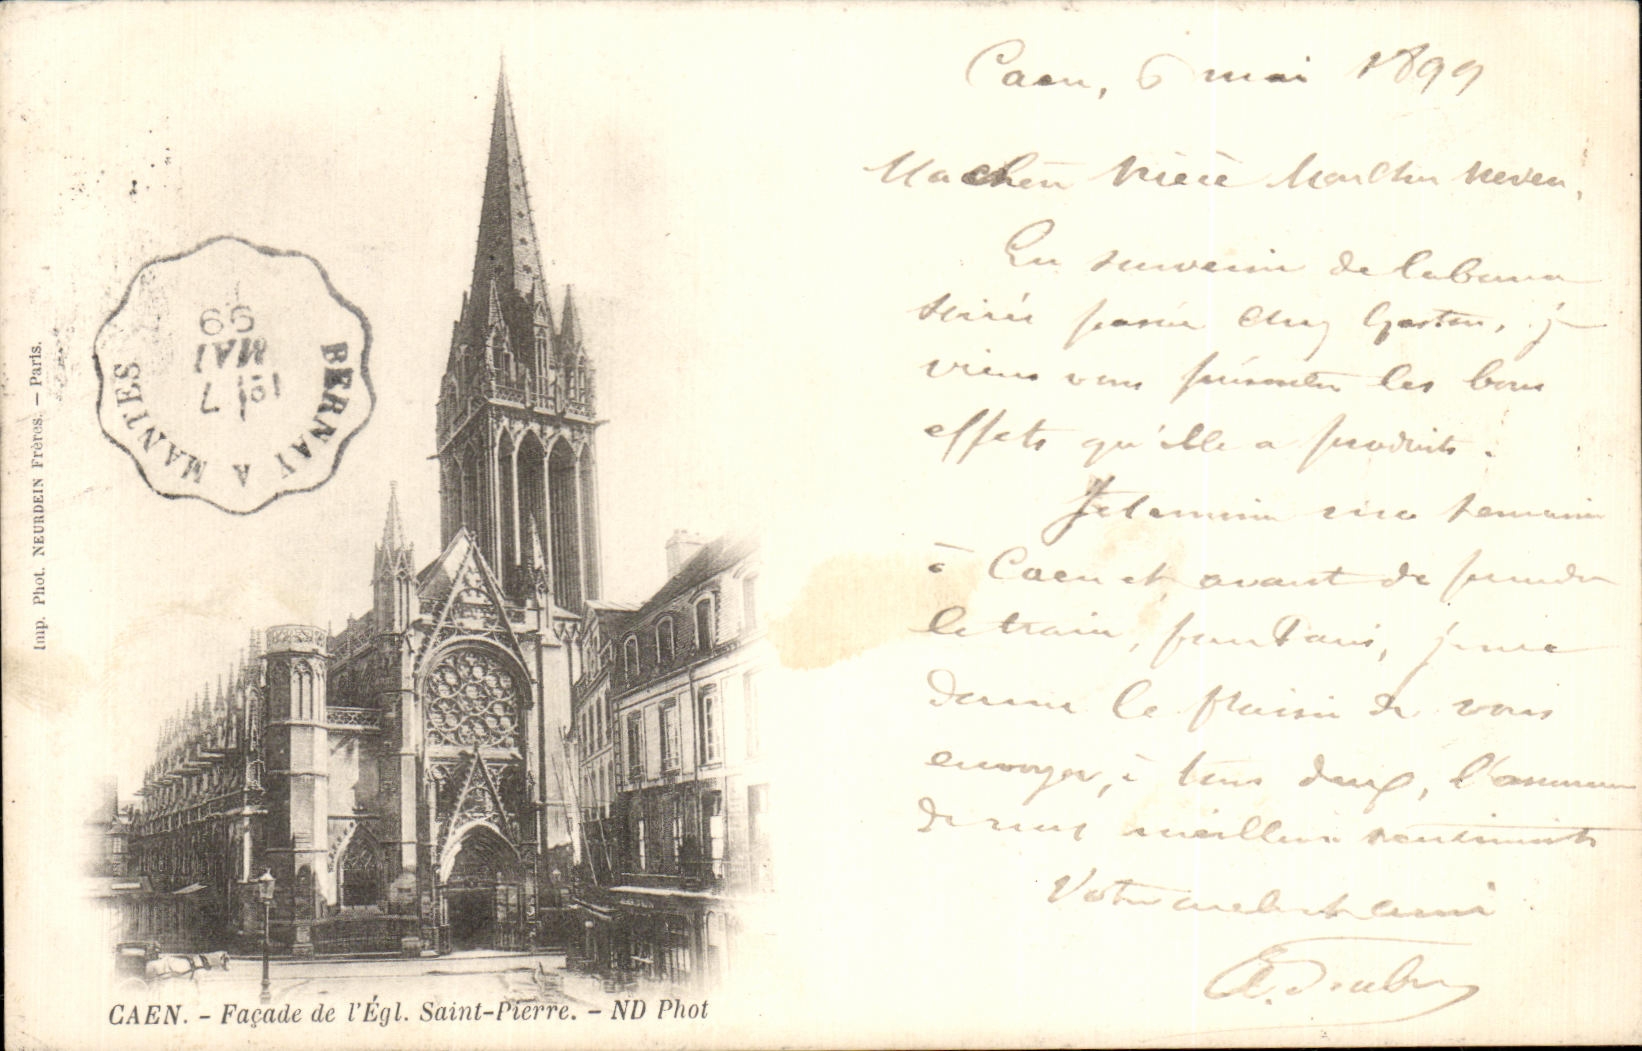 Caen, 6 mai 1899
Ma chère
En souvenir de la bonne
soirée passée chez Gaston, je
viens vous présenter les bons
effets qu'elle a produits.
Je termine ma semaine
à Caen et, avant de prendre
le train, pour Paris, je me
donne le plaisir de vous
envoyer, à tous deux, l'assurance
de mes meilleurs sentiments
Votre ami
BERNAY A MANTES
7
MAI
99
Imp. Phot. NEURDEIN Frères. — Paris.
CAEN. - Façade de l'Égl. Saint-Pierre. - ND Phot